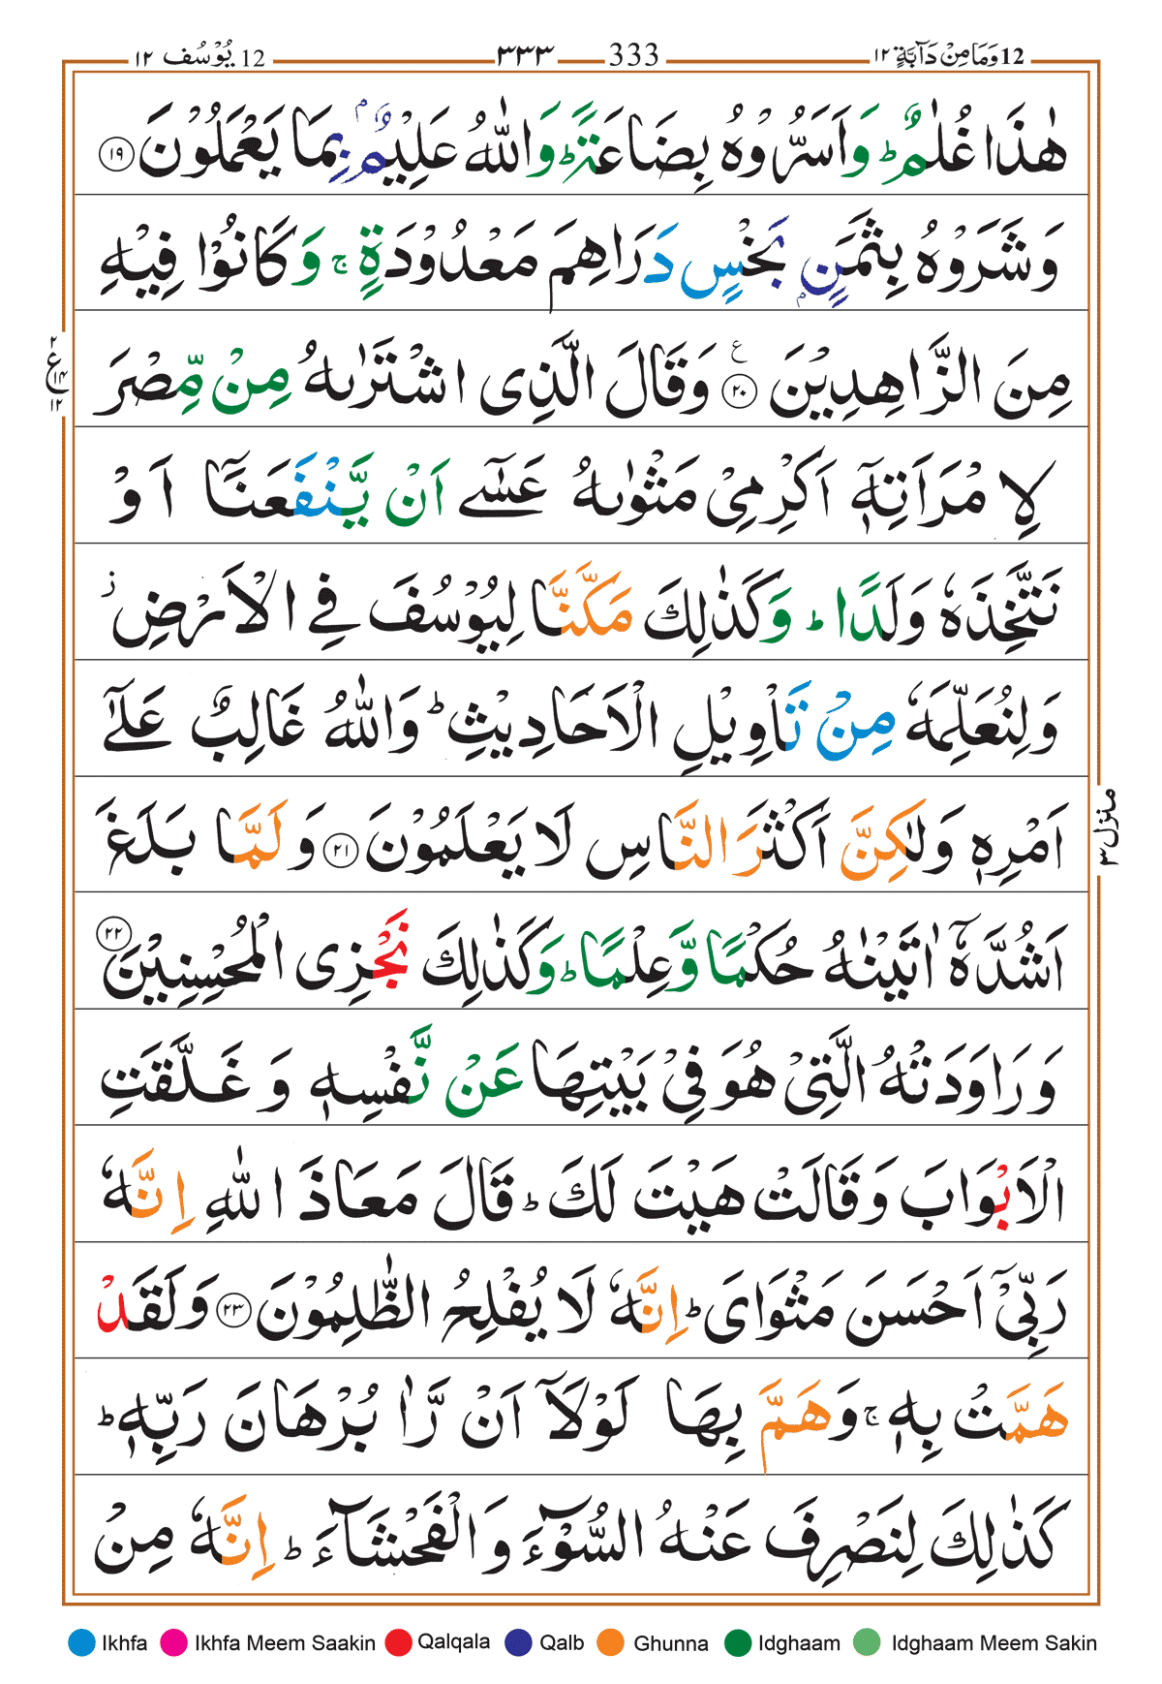 12 وَمَا مِنْ دَآبَّةٍ ١٢ 333 ٣٣٣ 12 يُوْسُف ١٢
هٰذَا غُلٰمٌ ؕ وَاَسَرُّوْهُ بِضَاعَةً ؕ وَاللّٰهُ عَلِيْمٌۢ بِمَا يَعْمَلُوْنَ ١٩
وَشَرَوْهُ بِثَمَنٍۢ بَخْسٍ دَرَاهِمَ مَعْدُوْدَةٍ ۚ وَكَانُوْا فِيْهِ
مِنَ الزَّاهِدِيْنَ ٢٠ ع وَقَالَ الَّذِى اشْتَرٰىهُ مِنْ مِّصْرَ
لِامْرَاَتِهٖۤ اَكْرِمِىْ مَثْوٰىهُ عَسٰٓى اَنْ يَّنْفَعَنَاۤ اَوْ
نَتَّخِذَهٗ وَلَدًا ؕ وَكَذٰلِكَ مَكَّنَّا لِيُوْسُفَ فِى الْاَرْضِ ز
وَلِنُعَلِّمَهٗ مِنْ تَاْوِيْلِ الْاَحَادِيْثِ ؕ وَاللّٰهُ غَالِبٌ عَلٰٓى
اَمْرِهٖ وَلٰكِنَّ اَكْثَرَ النَّاسِ لَا يَعْلَمُوْنَ ٢١ وَلَمَّا بَلَغَ
اَشُدَّهٗۤ اٰتَيْنٰهُ حُكْمًا وَّعِلْمًا ؕ وَكَذٰلِكَ نَجْزِى الْمُحْسِنِيْنَ ٢٢
وَرَاوَدَتْهُ الَّتِىْ هُوَ فِىْ بَيْتِهَا عَنْ نَّفْسِهٖ وَغَلَّقَتِ
الْاَبْوَابَ وَقَالَتْ هَيْتَ لَكَ ؕ قَالَ مَعَاذَ اللّٰهِ اِنَّهٗ
رَبِّىْۤ اَحْسَنَ مَثْوَاىَ ؕ اِنَّهٗ لَا يُفْلِحُ الظّٰلِمُوْنَ ٢٣ وَلَقَدْ
هَمَّتْ بِهٖ ۚ وَهَمَّ بِهَا لَوْلَاۤ اَنْ رَّاٰ بُرْهَانَ رَبِّهٖ ؕ
كَذٰلِكَ لِنَصْرِفَ عَنْهُ السُّوْٓءَ وَالْفَحْشَآءَ ؕ اِنَّهٗ مِنْ
٢
ع ١٤
١٢
منزل ٣
Ikhfa Ikhfa Meem Saakin Qalqala Qalb Ghunna Idghaam Idghaam Meem Sakin